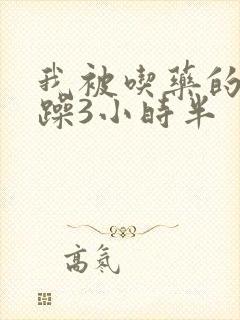 我被喫藥的
躁3小時半
高氡